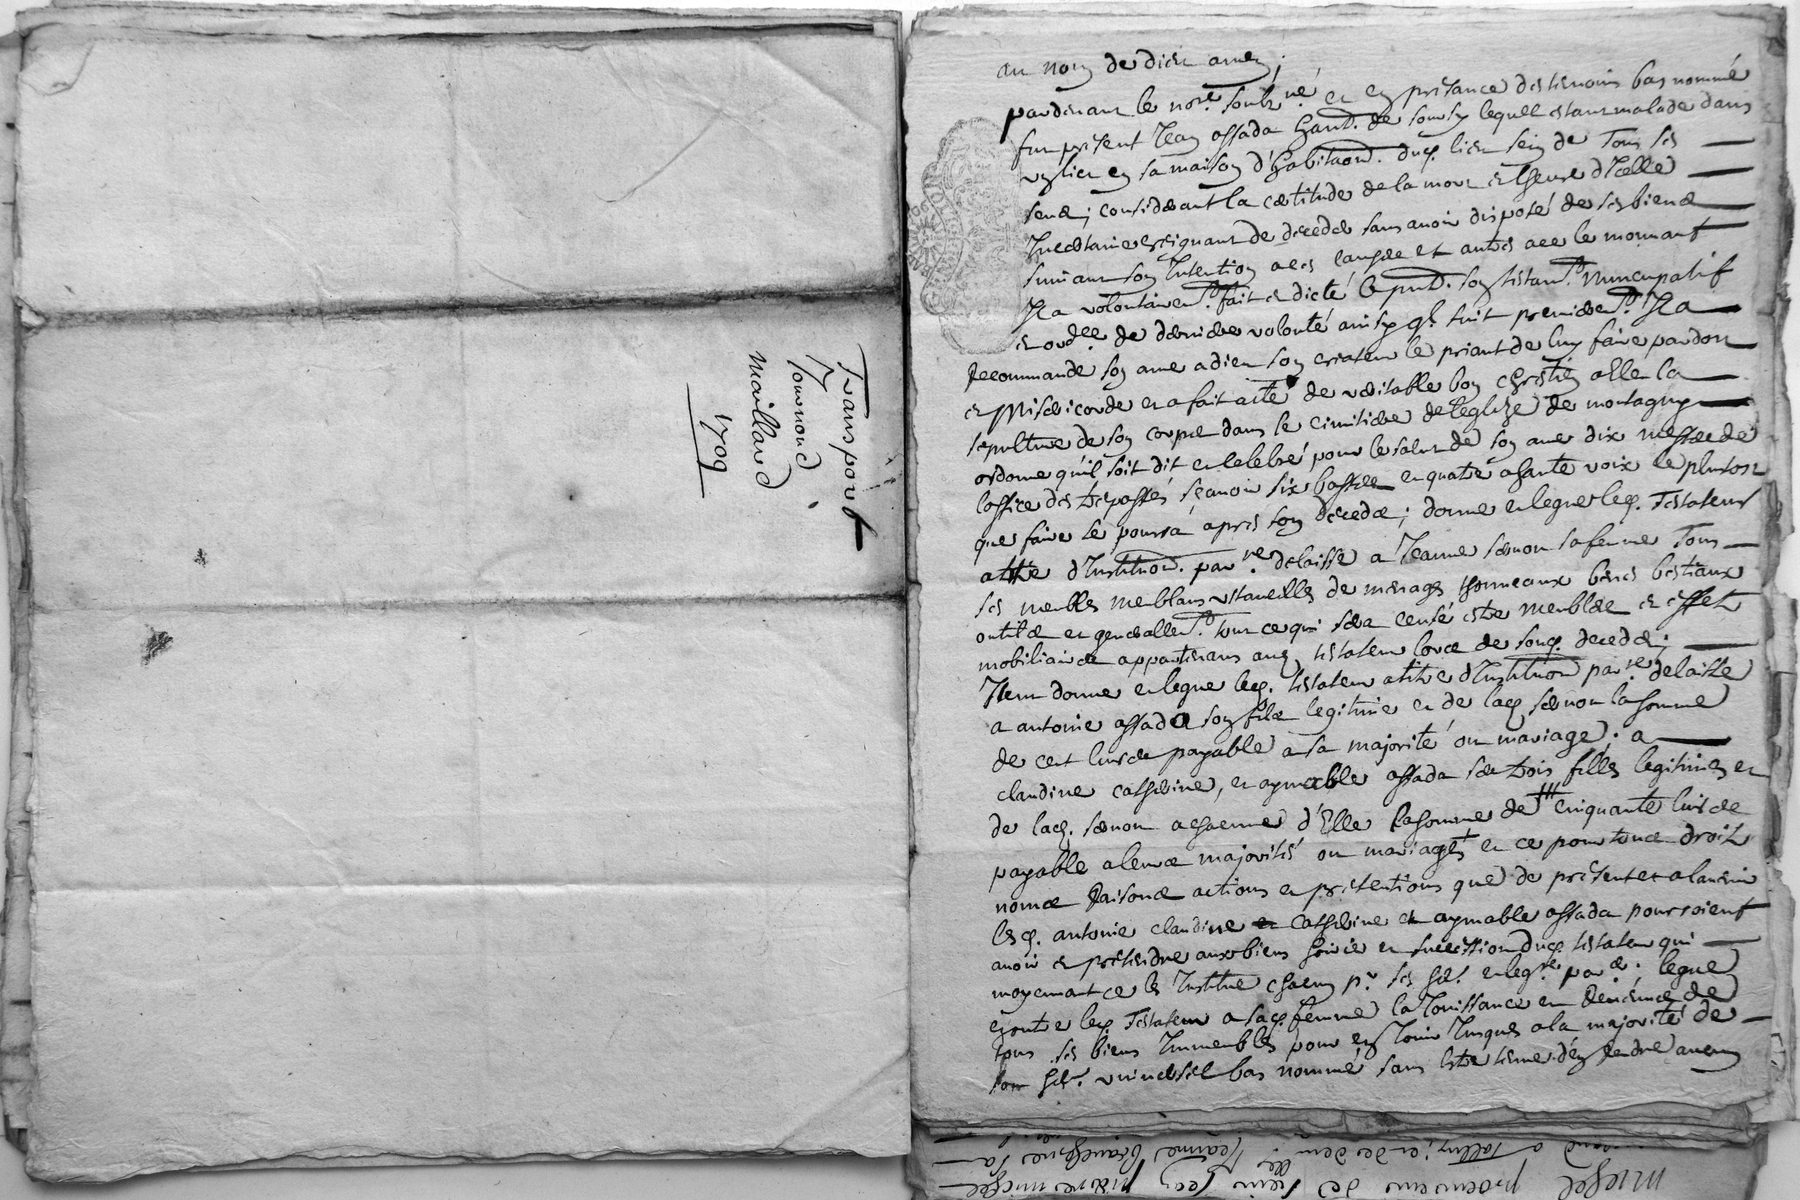 Transport
Tournond
Maillard
1709
au nom de dieu amen;
pardevant le no.re soubz.né et en présance des tesmoins bas nommé
fut présent Jean assada habt. de sourzy lequel estant malade dans
un lict en sa maison d'habitaon. dud. lieu sein de Tous ses
sens; considerant la certitude de la mort et lheure d'Icelle
Incertaine creignant de deceder sans avoir disposé de ses biens
suivant son Intention
Il a volontairem.t fait et dicté le pnt. son testam.t Nuncupatif
et ord.ce de derniere volonté ainsy q. suit premierem.t Il a
Recommandé son ame a dieu son createur le priant de luy faire pardon
et Misericorde et a fait acte de veritable bon chrestien
sepulture de son corps dans le cimitiere de leglize de montagny
ordonne qu'il soit dit et celebré pour le salut de son ame dix messes de
loffice des trepassés sçavoir six basses et quatre a haute voix le plutost
que faire se pourra apres son decedz; donne et legue led. Testateur
a titre d'Institution. par.re delaisse a Jeanne senon sa femme Tous
ses meubles meublans ustancilles de menages thonneaux benes bestiaux
outils et generallem.t tout ce qui sera censé estre meubles et effets
mobiliaires appartenans aud. testateur lors de sond. decedz;
Item donne et legue led. testateur a titre d'Institution par.re delaisse
a antoine assada son fils legitime et de lad. senon la somme
de cent livres payable a sa majorité ou mariage; a
claudine catherine, et aymable assada ses trois filles legitimes et
de lad. senon a chacune d'Elle la somme de cinquante livres
payable a leurs majorités ou mariages et ce pour tous droits
noms Raisons actions et prétentions que de présent et a lavenir
lesd. antoine claudine et catherine et aymable assada pourroient
avoir et prétendre aux biens hoirie et succession dud. testateur qui
moyennant ce les Institue chacun p.r ses hers. et leg.re par.r. legue
en outre led. Testateur a sad. femme la Jouissance et Revenus de
tous ses biens Immeubles pour en Jouir Jusques a la majorité de
son her. universel bas nommé sans estre tenue d'en rendre aucun